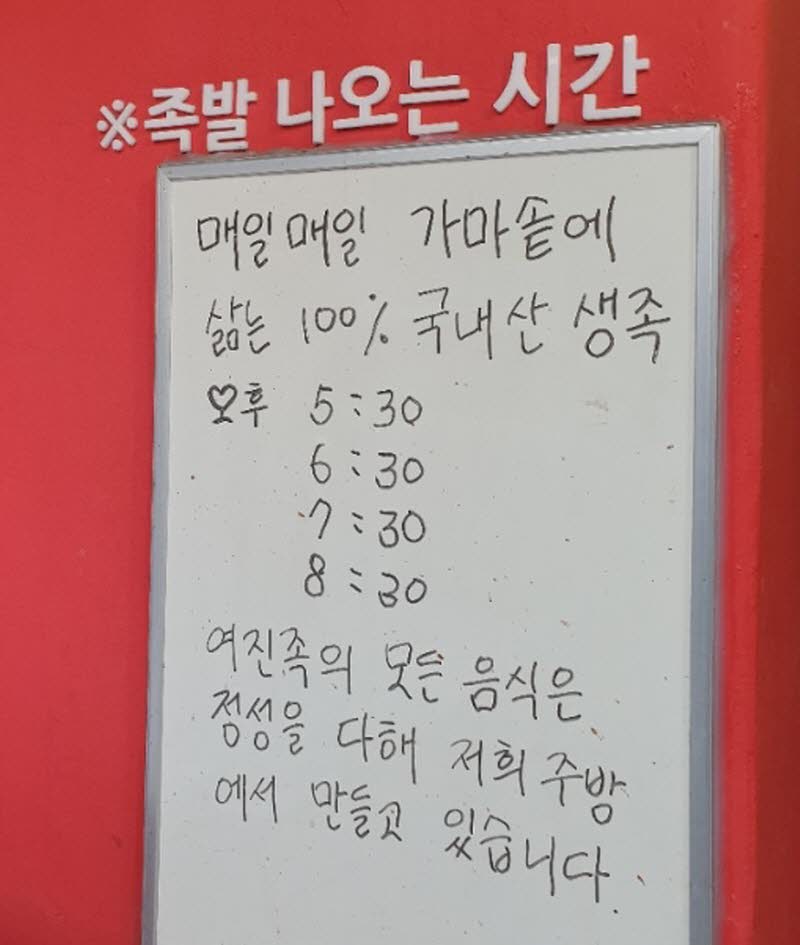 ※족발 나오는 시간
매일매일 가마솥에
삶는 100% 국내산 생족
♡오후 5:30
6:30
7:30
8:30
여진족의 모든 음식은
정성을 다해 저희 주방
에서 만들고 있습니다.